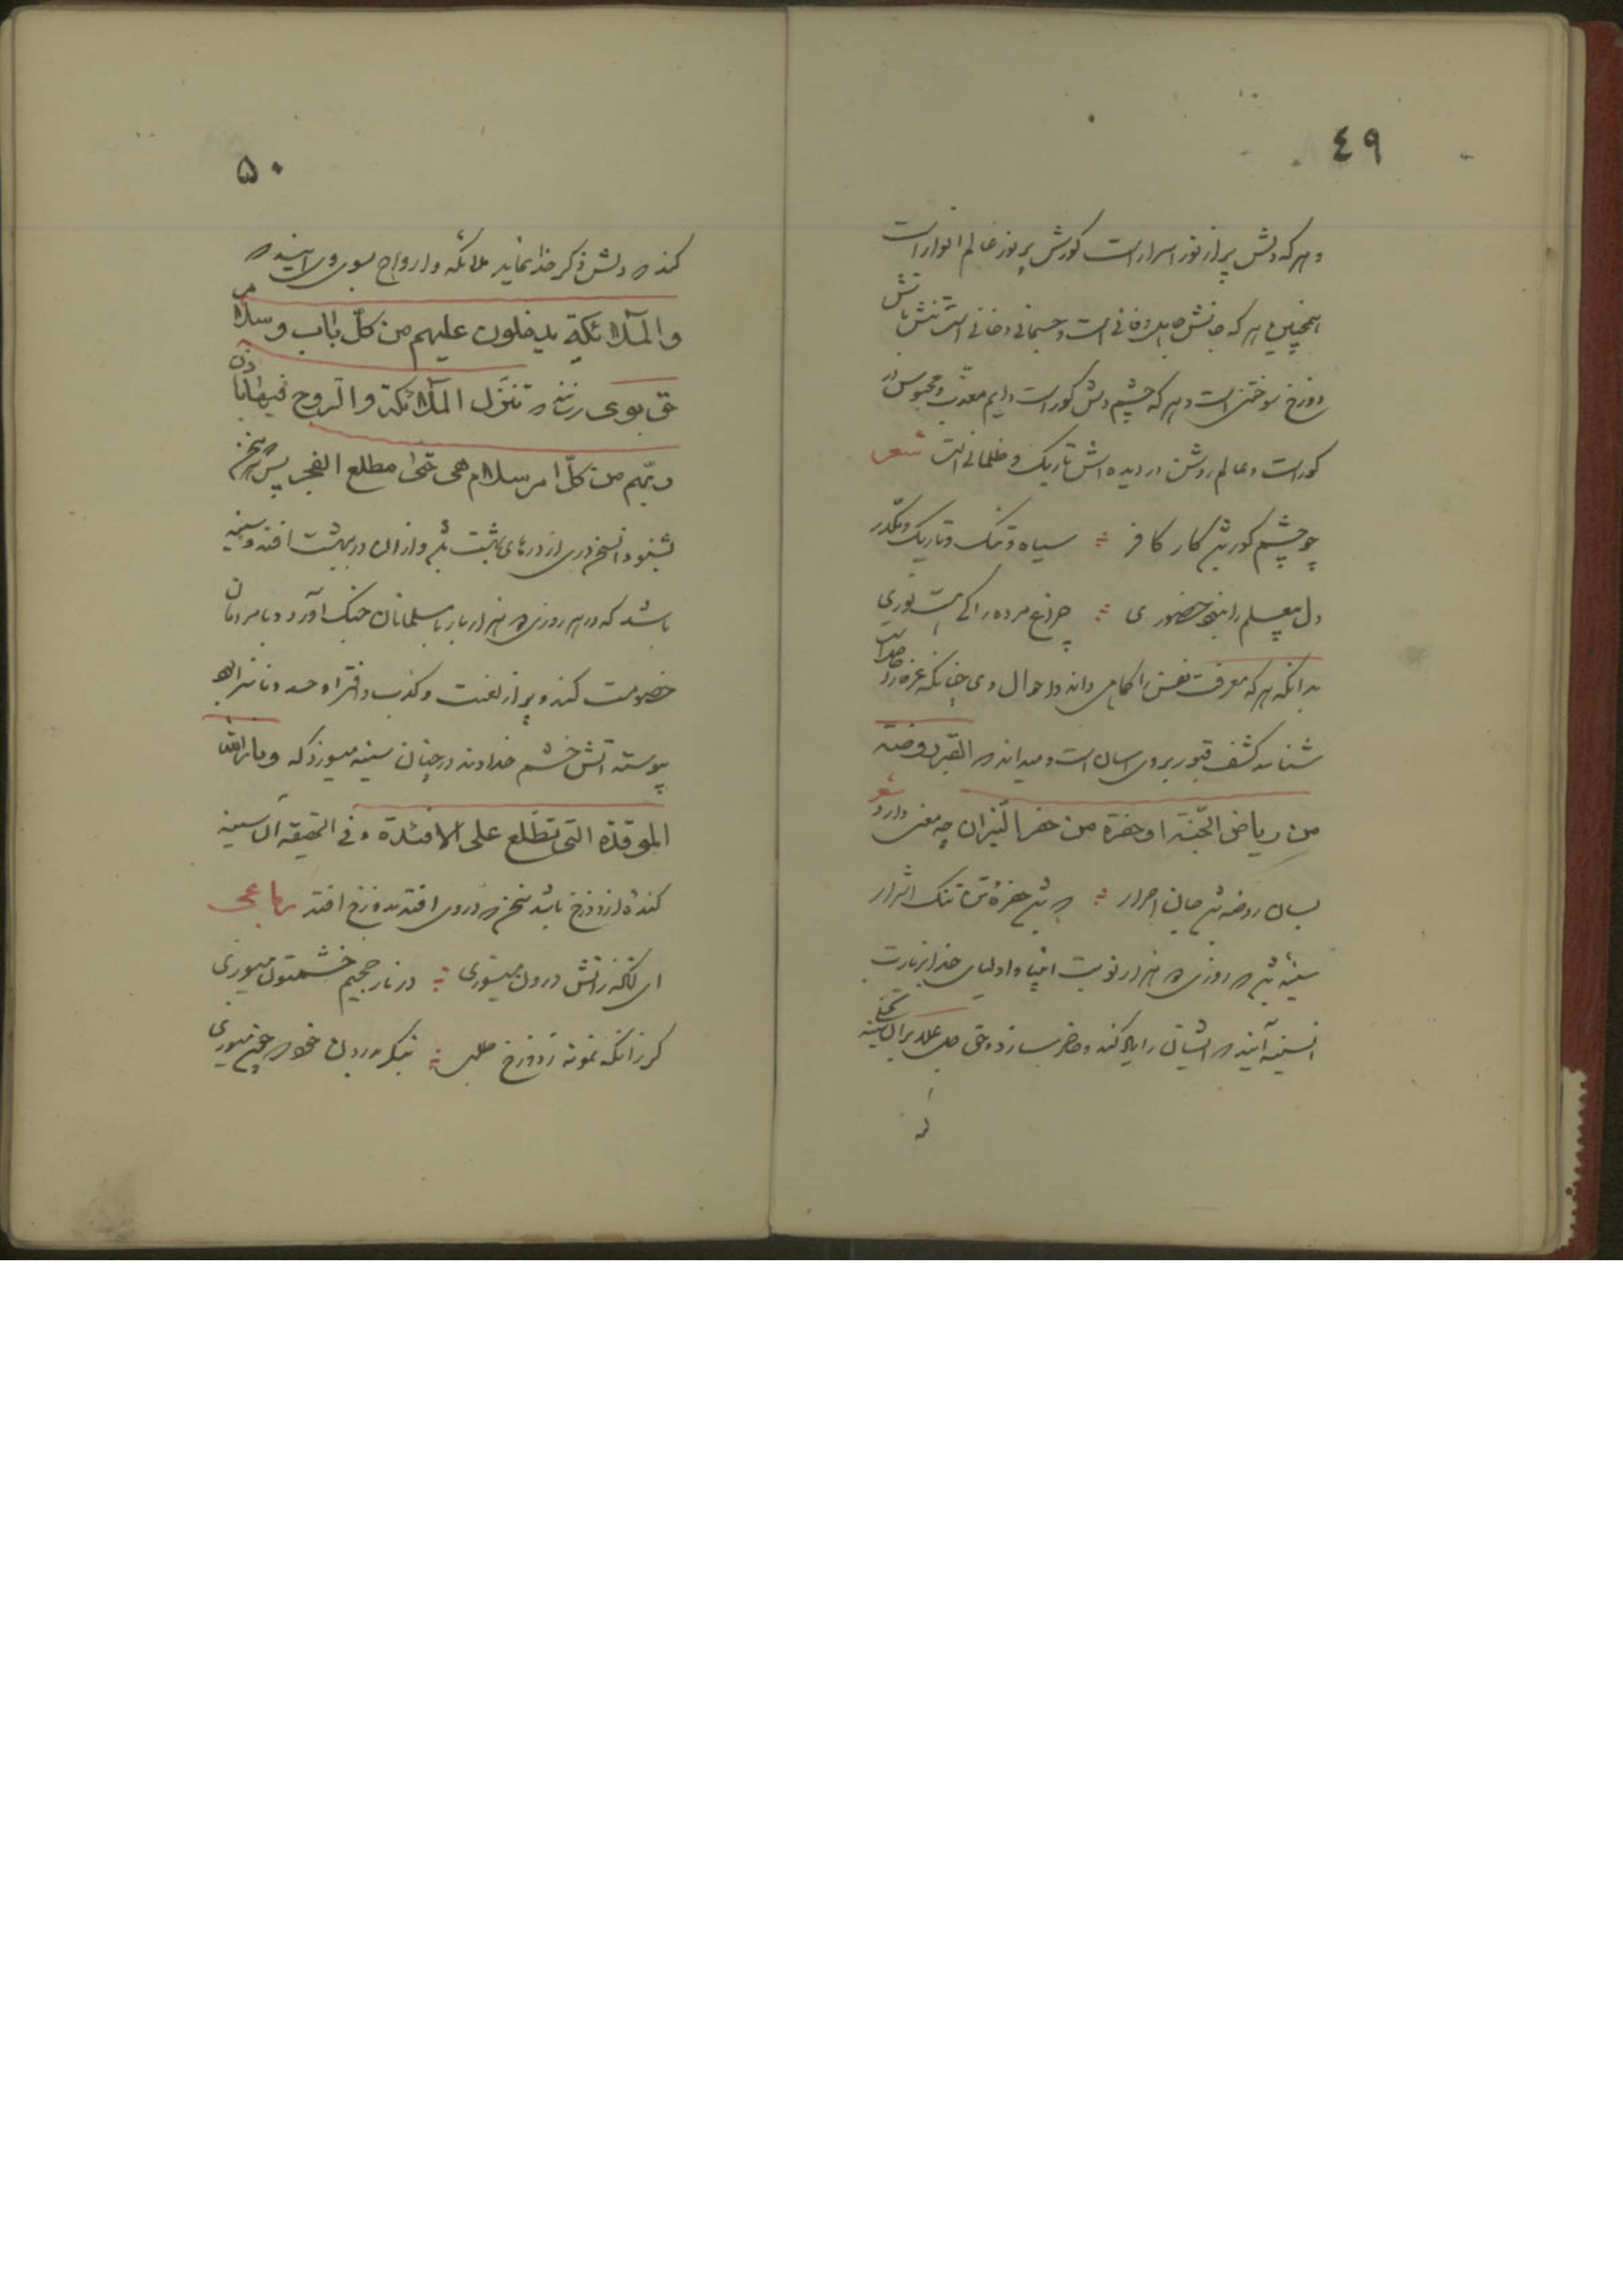 ٤٩
و هر که دلش پر از نور اسرار است کورش پر نور عالم انوار است
همچنین هر که جانش جاهل و فانی است و جسمانی و خانی است تنش باتش
دوزخ سوختنی است و هر که چشم دلش کور است دایم معذب و محبوس در
کور است و عالم روشن در دیده اش تاریک و ظلمانی است شعر
چو چشم کور شد کار کافر ؞ سیاه و تنک و تاریک و مکدر
دل بیعلم را نبود حضوری ؞ چراغ مرده را کی هست نوری
بدانکه هر که معرفت نفس را کماهی داند و احوال وی چنانکه
شناسد کشف قبور بر وی اسان است و میداند که القبر روضة
من ریاض الجنة او حفرة من حفر النیران چه معنی دارد شعر
بسان روضه شد جان احرار ؞ که شد حفره تن تنک اشرار
سینه شد که روزی هزار نوبت انبیا و اولیای خدا بزیارت
انسینه آیند که ایشان را یاد کند و حاضر سازد و حق جل علا بر آن سینه تجلی
۵۰
کند که دلش ذکر خدا نماید ملائکه و ارواح بسوی وی ایند که
والملائكة يدخلون عليهم من كل باب و سلام
حق بوی رسانند که تنزل الملائكة والروح فيها باذن
ربهم من كل امر سلام هی حتی مطلع الفجر پس هر سخن
بشنود انسخن دری از درهای بهشت باشد و از ان در بهشت افتد و سینه
باشد که در هر روزی هزار بار با مسلمانان جنک آورد و با مردمان
خصومت کند و پر از لعنت و کذب و افترا و حسد و ناسزا
پیوسته آتش خشم خداوند در چنان سینه میسوزد که و نار الله
الموقدة التی تطلع علی الافئدة و فی الحقیقه آن سینه
کندهٔ از دوزخ باشد سخن که در وی افتد بدوزخ افتد رباعی
ای انکه ز آتش درون میسوزی ؞ در نار جحیم خشمتون میسوزی
کر زانکه نمونه ز دوزخ طلبی ؞ بنکر بدرون خود که چون میسوزی